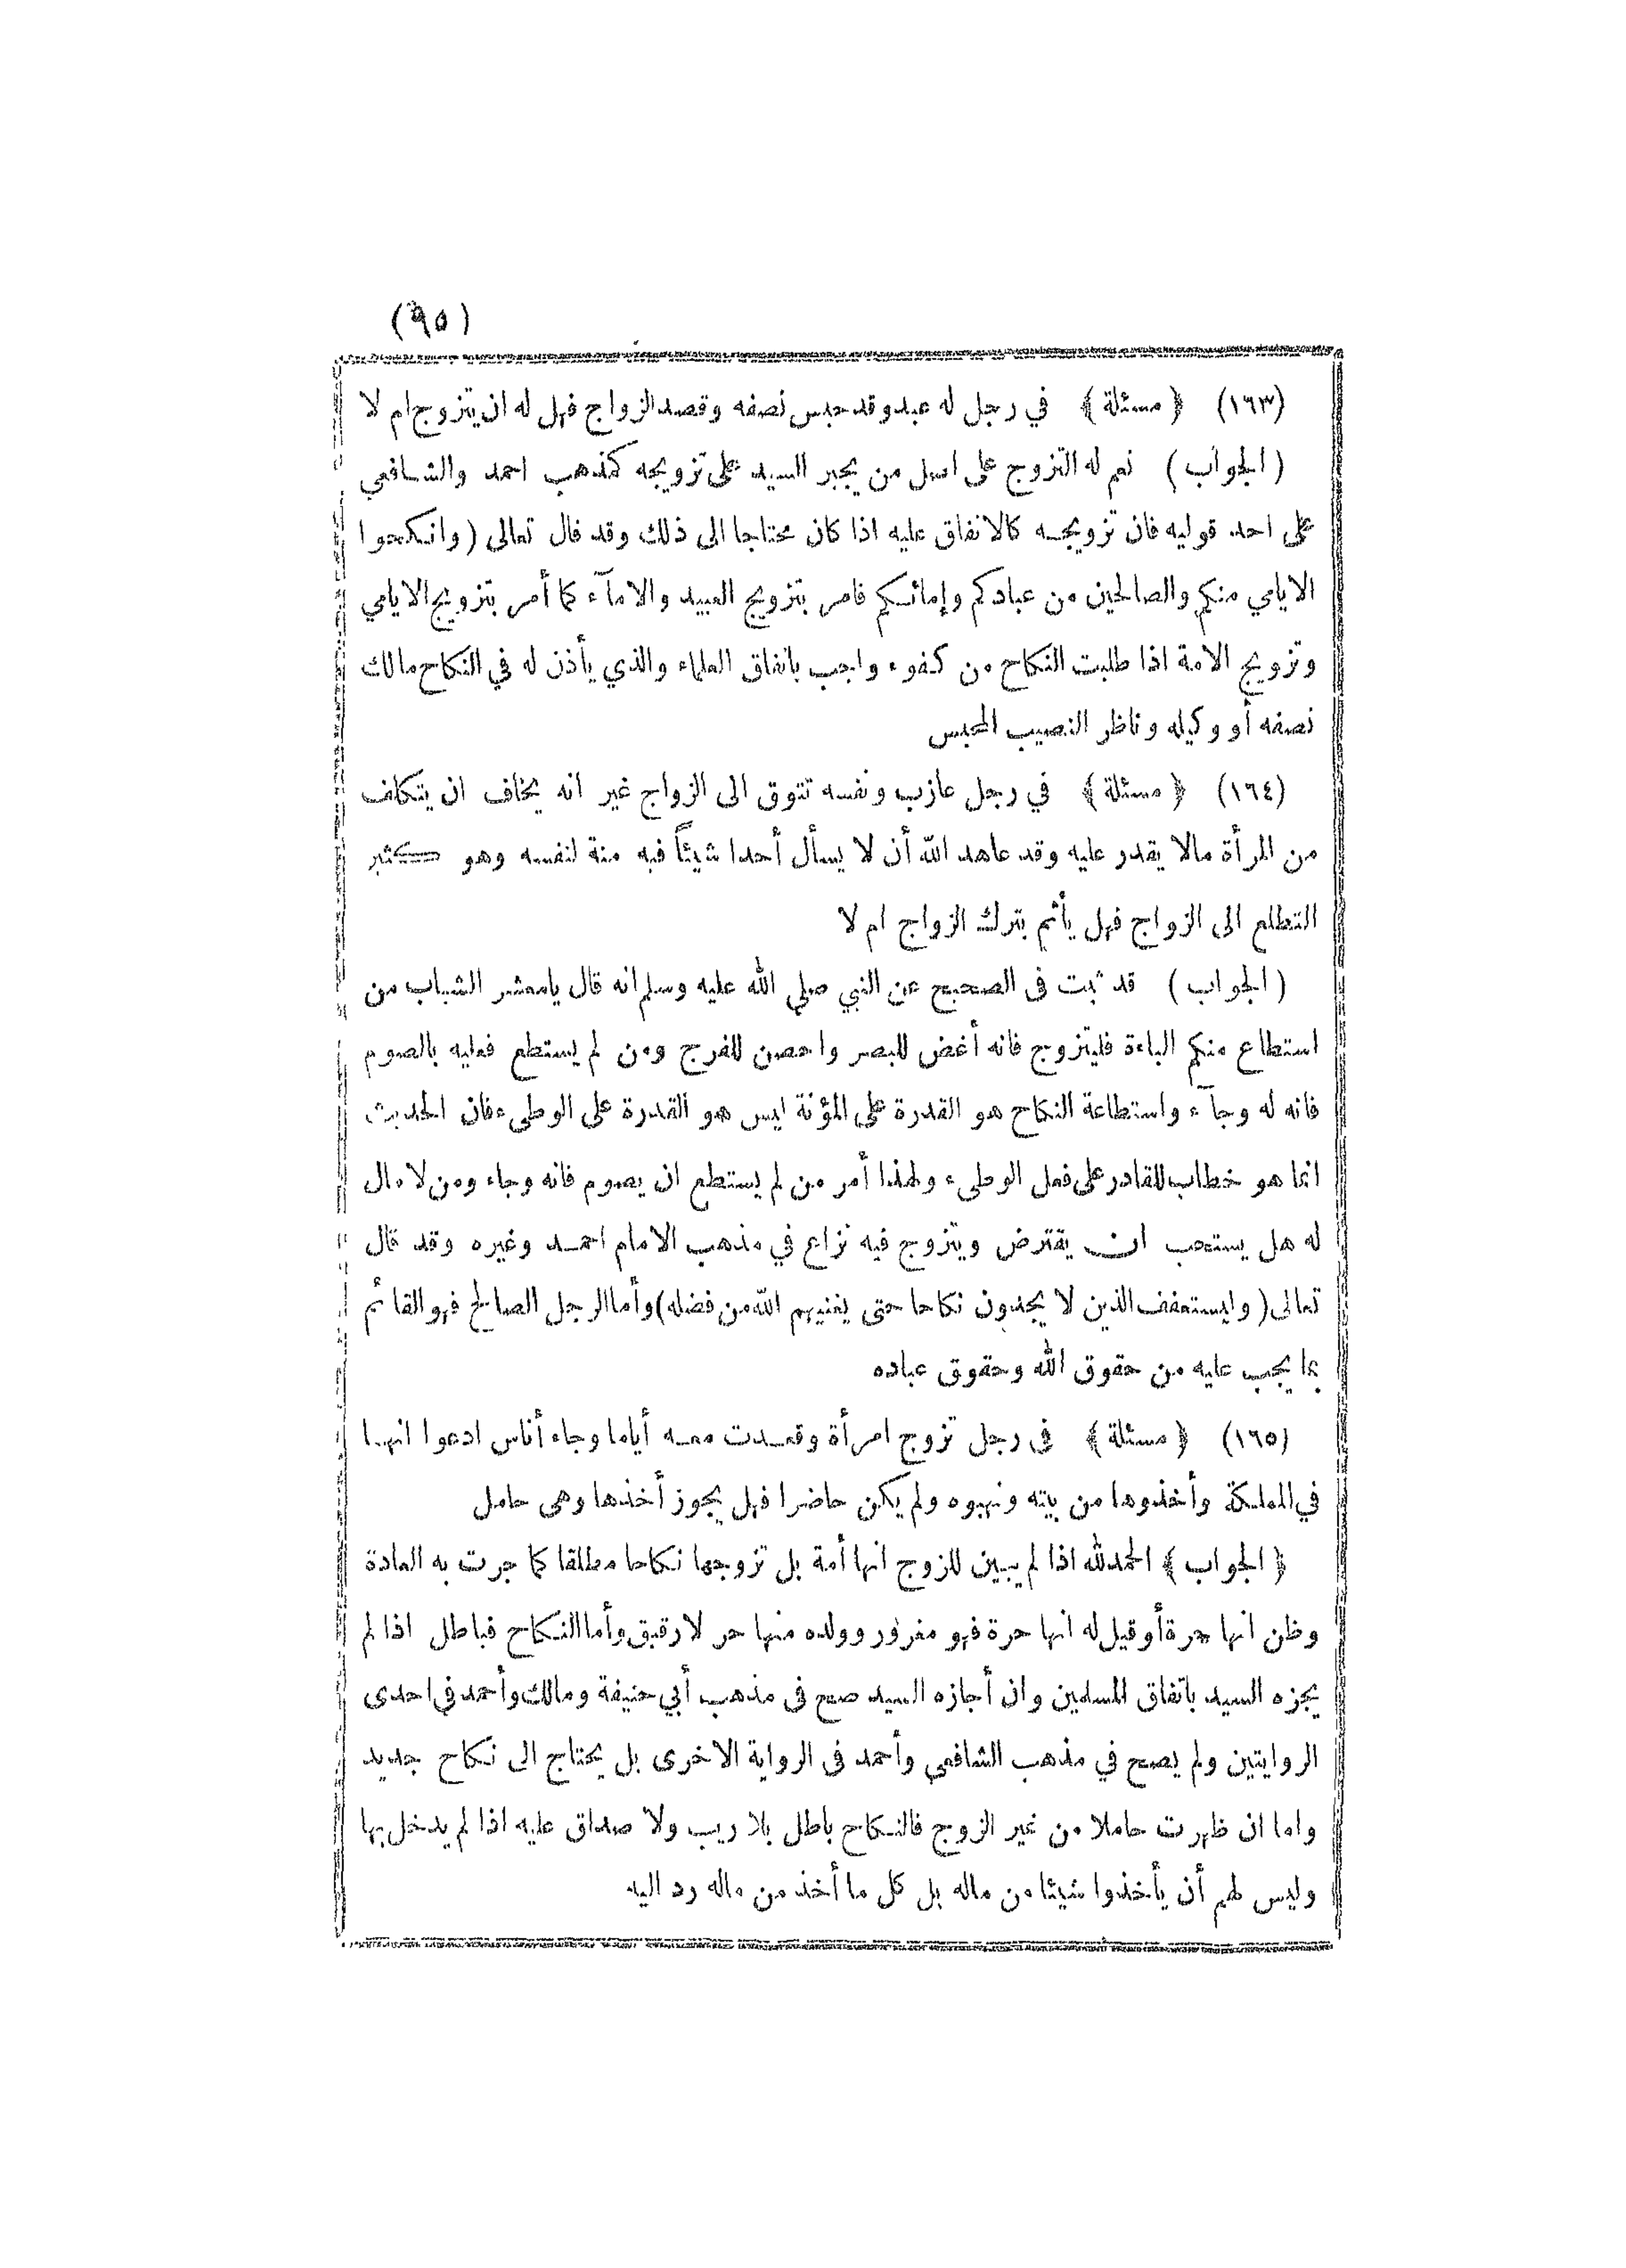 (٩٥)
(١٦٣) ﴿ مسئلة ﴾ في رجل له عبد وقد حبس نصفه وقصد الزواج فهل له ان يتزوج ام لا
( الجواب ) نعم له التزوج على اصل من يجبر السيد على تزويجه كمذهب احمد والشافعي
على احد قوليه فان تزويجه كالانفاق عليه اذا كان محتاجا الى ذلك وقد قال تعالى ( وانكحوا
الايامي منكم والصالحين من عبادكم وإمائكم فامر بتزويج العبيد والامآء كما أمر بتزويج الايامي
وتزويج الامة اذا طلبت النكاح من كفوء واجب باتفاق العلماء والذي يأذن له في النكاح مالك
نصفه أو وكيله وناظر النصيب المحبس
(١٦٤) ﴿ مسئلة ﴾ في رجل عازب ونفسه تتوق الى الزواج غير انه يخاف ان يتكلف
من المرأة مالا يقدر عليه وقد عاهد الله أن لا يسأل أحدا شيئاً فيه منة لنفسه وهو كثير
التطلع الى الزواج فهل يأثم بترك الزواج ام لا
( الجواب ) قد ثبت فى الصحيح عن النبي صلي الله عليه وسلم انه قال يامعشر الشباب من
استطاع منكم الباءة فليتزوج فانه أغض للبصر واحصن للفرج ومن لم يستطع فعليه بالصوم
فانه له وجآء واستطاعة النكاح هو القدرة على المؤنة ليس هو القدرة على الوطىء فان الحديث
انما هو خطاب للقادر على فعل الوطىء ولهذا أمر من لم يستطع ان يصوم فانه وجاء ومن لا مال
له هل يستحب ان يقترض ويتزوج فيه نزاع في مذهب الامام احمد وغيره وقد قال
تعالى ( وليستعفف الذين لا يجدون نكاحا حتى يغنيهم الله من فضله) وأما الرجل الصالح فهو القائم
بما يجب عليه من حقوق الله وحقوق عباده
(١٦٥) ﴿ مسئلة ﴾ فى رجل تزوج امرأة وقعدت معه أياما وجاء أناس ادعوا انها
في المملكة وأخذوها من بيته ونهبوه ولم يكن حاضرا فهل يجوز أخذها وهى حامل
﴿ الجواب ﴾ الحمد لله اذا لم يبين للزوج انها أمة بل تزوجها نكاحا مطلقا كما جرت به العادة
وظن انها حرة أو قيل له انها حرة فهو مغرور وولده منها حر لا رقيق وأما النكاح فباطل اذا لم
يجزه السيد باتفاق المسلمين وان أجازه السيد صح فى مذهب أبي حنيفة ومالك وأحمد في احدى
الروايتين ولم يصح في مذهب الشافعي وأحمد فى الرواية الاخرى بل يحتاج الى نكاح جديد
واما ان ظهرت حاملا من غير الزوج فالنكاح باطل بلا ريب ولا صداق عليه اذا لم يدخل بها
وليس لهم أن يأخذوا شيئا من ماله بل كل ما أخذ من ماله رد اليه